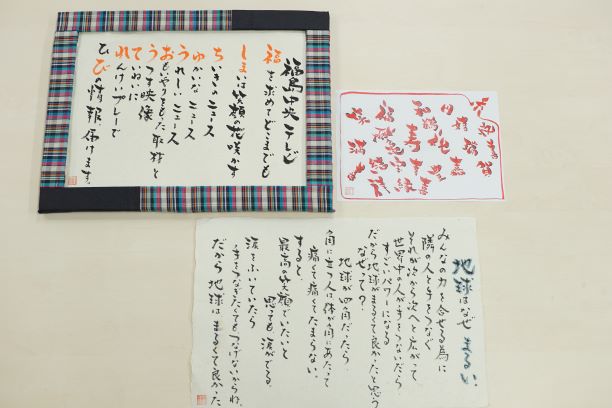 福島中央テレビ
福を求めてどこまでも
しまいは笑顔の花咲かす
ちいきのニュース
ゆかいなニュース
うれしいニュース
おもいやりをもった取材と
うつす映像
ていねいに
れんけいプレーで
ひびの情報届けます。
地球はなぜまるい
みんなの力を合せる為に
隣の人と手をつなぐ
それが次から次へと広がって
世界中の人が手をつないだら
すごいパワーになる
だから地球がまるくて良かったと思う
なぜって?
地球が四角だったら
角に立つ人は体が角にあたって
痛くて痛くてたまらない。
すると
最高の笑顔でいたいと
思っても涙がでる。
涙をふいていたら
手をつなぎたくてもつなげないからね。
だから地球はまるくて良かった